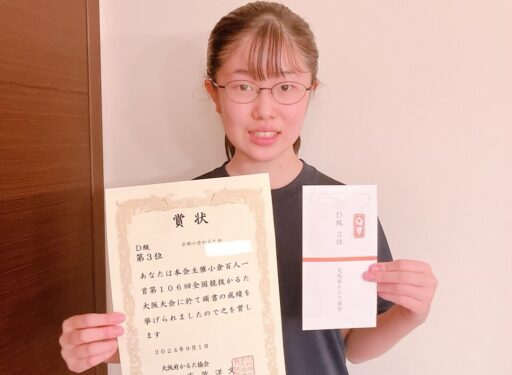 賞状
D級
京都小倉かるた会
第3位
あなたは本会主催小倉百人一
首第１０６回全国競技かるた
大阪大会に於て頭書の成績を
挙げられましたので之を賞し
ます
2024年9月1日
大阪府かるた協会
D級 3位
大阪府かるた協会